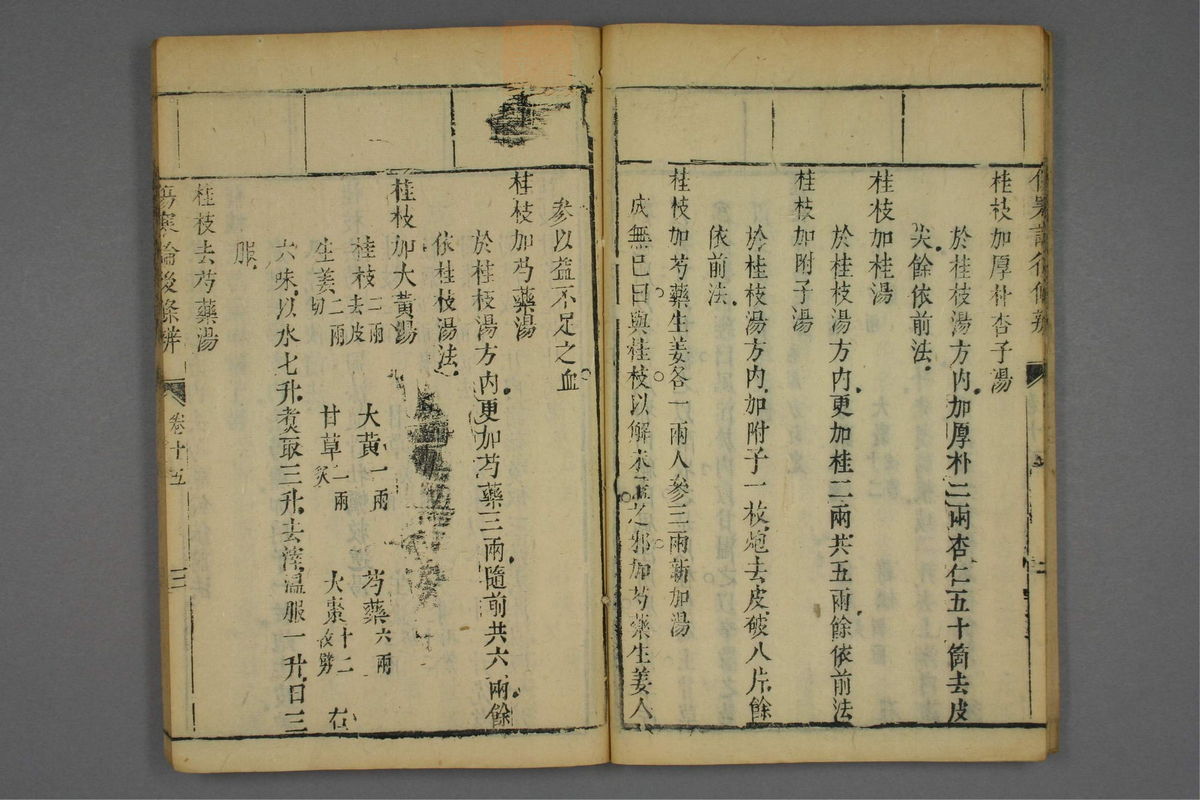 桂枝加厚朴杏子湯
於桂枝湯方內加厚朴二兩杏仁五十箇去皮
尖餘依前法
桂枝加桂湯
於桂枝湯方內更加桂二兩共五兩餘依前法
桂枝加附子湯
於桂枝湯方內加附子一枚炮去皮破八片餘
依前法
桂枝加芍藥生姜各一兩人參三兩新加湯
成無已曰與桂枝以解未盡之邪加芍藥生姜人
參以益不足之血
桂枝加芍藥湯
於桂枝湯方內更加芍藥三兩隨前共六兩餘
依桂枝湯法
桂枝加大黃湯
桂枝二兩去皮 大黃一兩 芍藥六兩
生姜二兩切 甘草一兩炙 大棗十二枚劈 右
六味以水七升煮取三升去滓溫服一升日三
服
桂枝去芍藥湯
傷寒論後條辨 卷十五 三